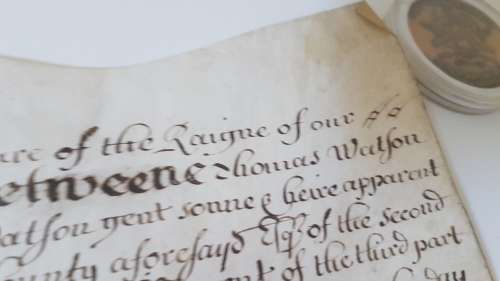 are of the Raigne of our
etweene Thomas Watson
atson gent sonne & heire apparent
ounty aforesayd Esqr of the second
nt of the third part
day